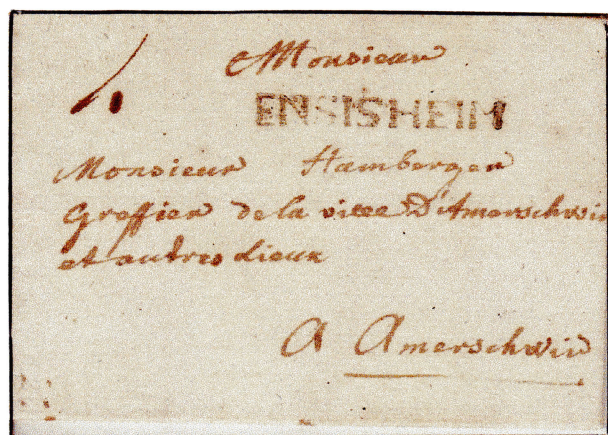 4
Monsieur
ENSISHEIM
Monsieur Hamberger
Greffier de la ville D'Amerschwir
et autres Lieux
A Amerschwir